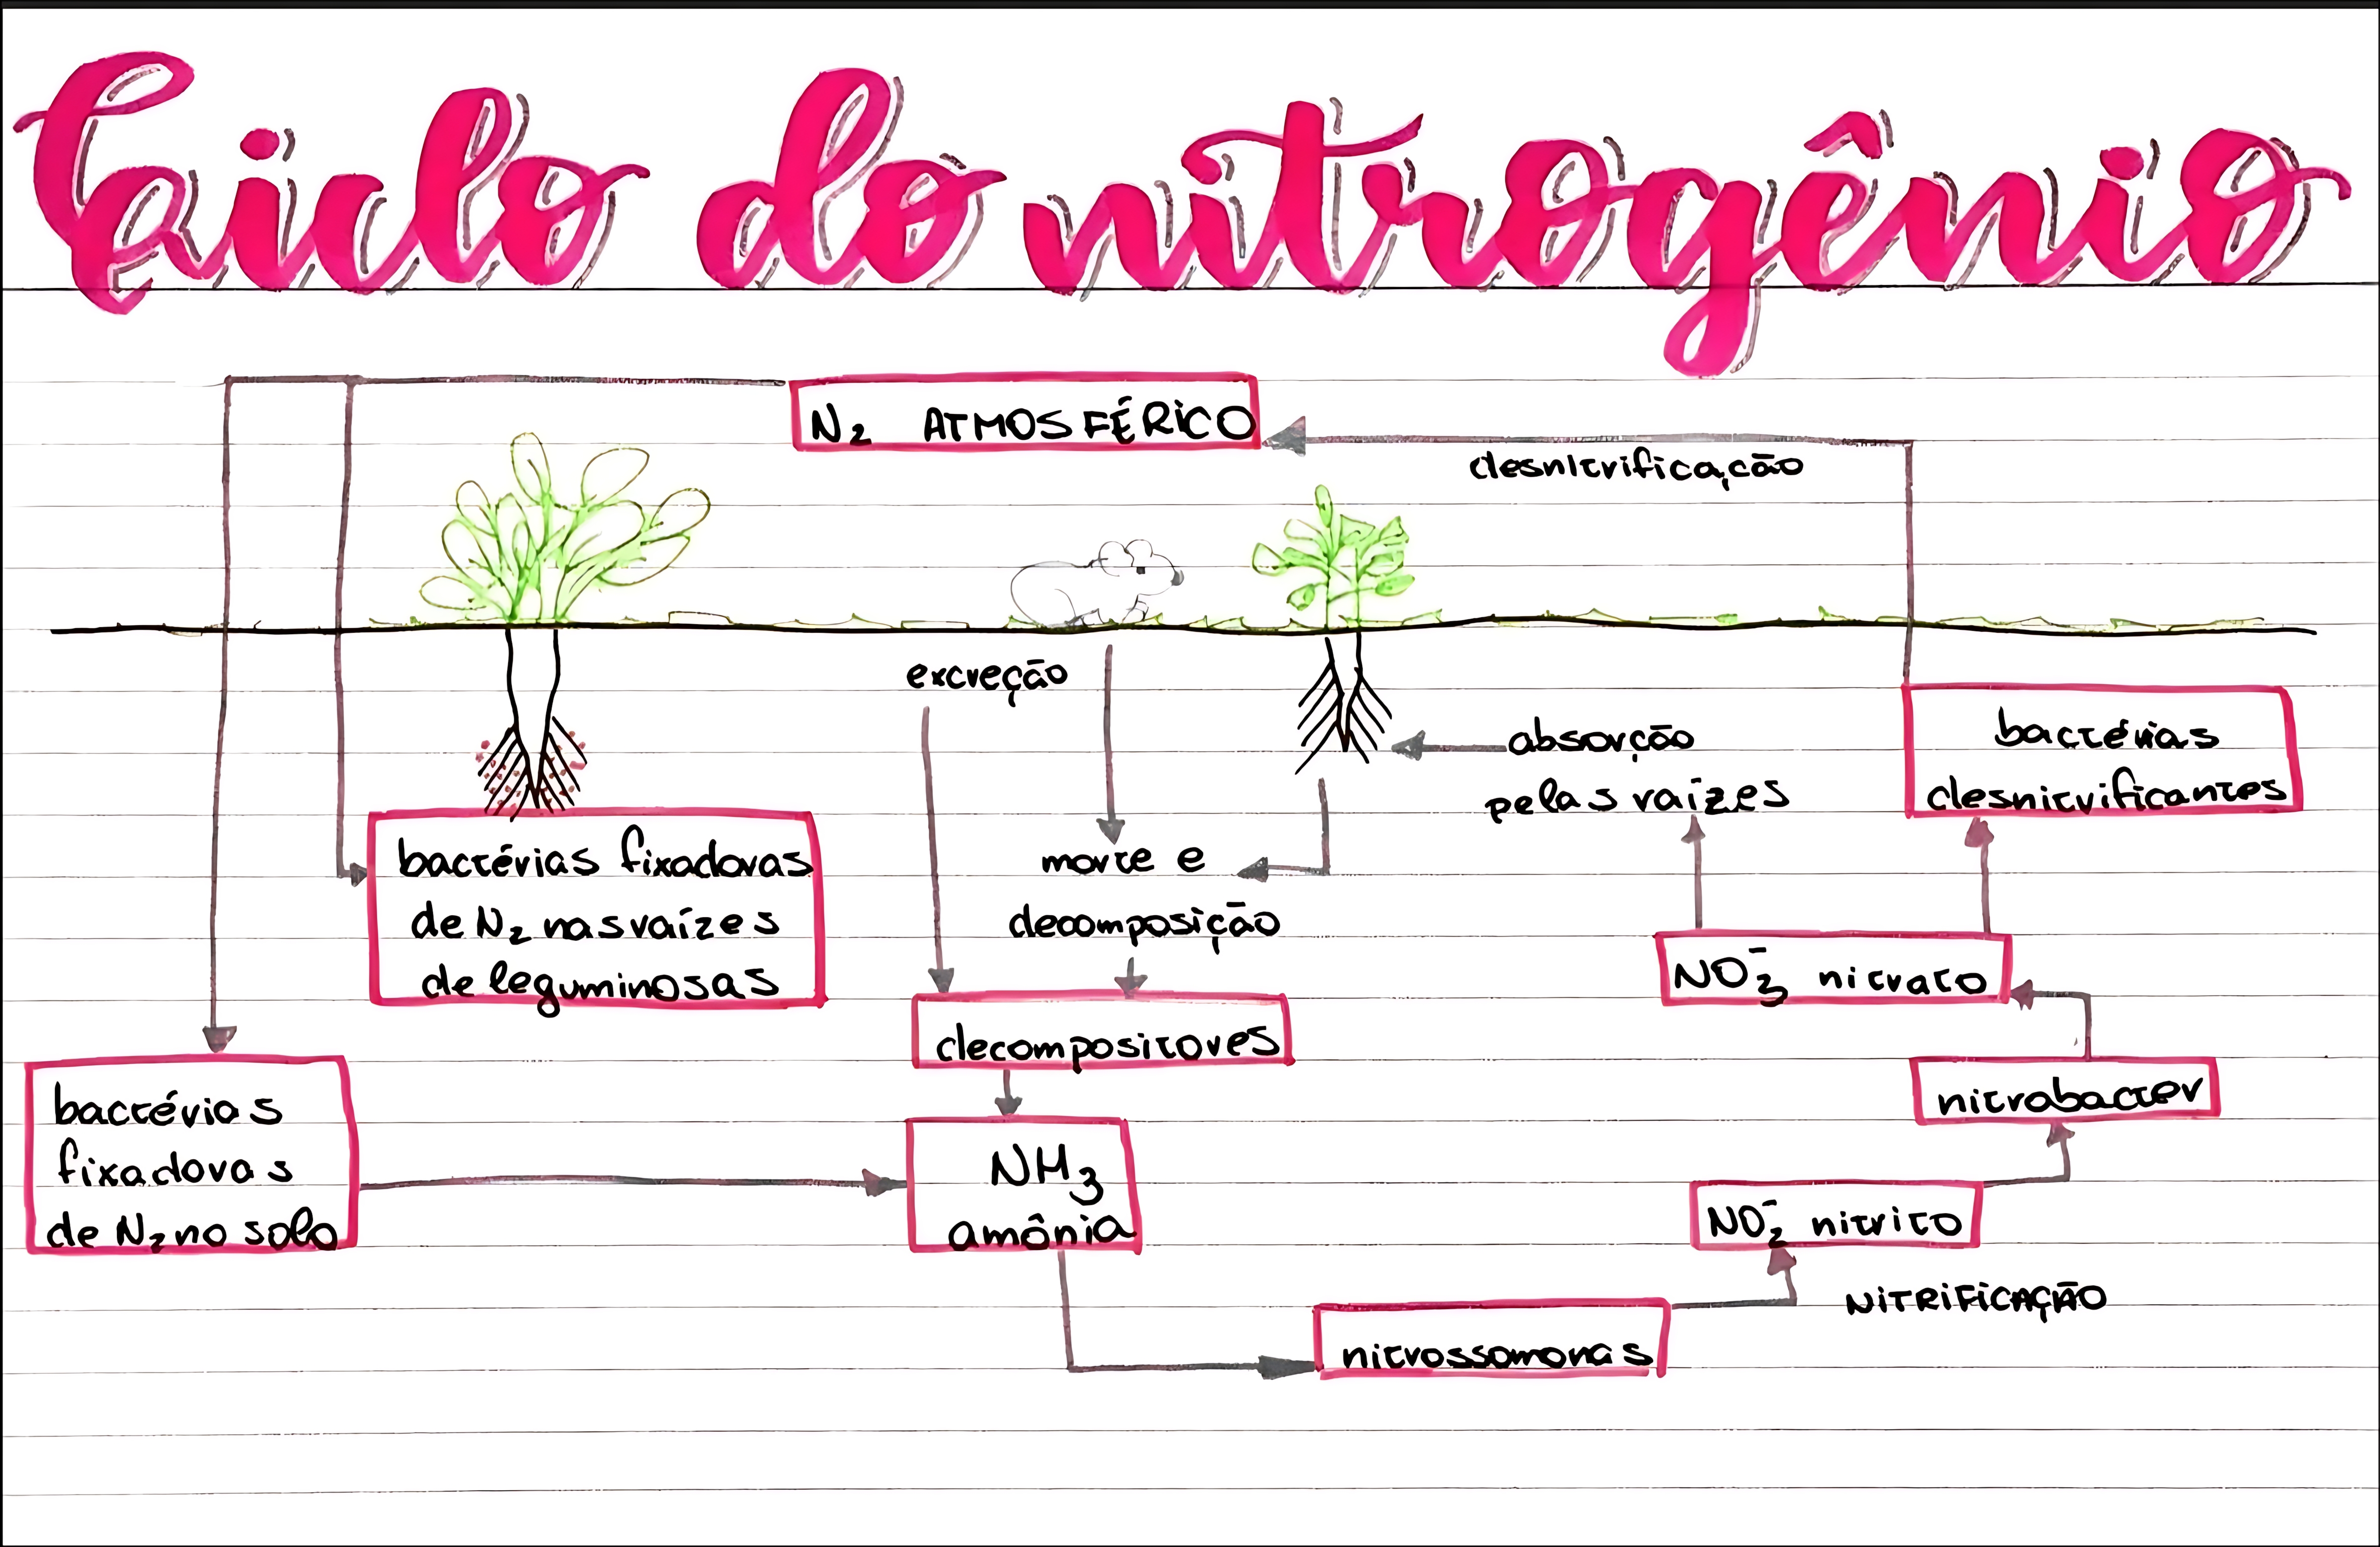 Ciclo do nitrogênio
N₂ ATMOSFÉRICO
desnitrificação
excreção
absorção
pelas raízes
bactérias
desnitrificantes
bactérias fixadoras
de N₂ nas raízes
de leguminosas
morte e
decomposição
NO₃⁻ nitrato
decompositores
bactérias
fixadoras
de N₂ no solo
nitrobacter
NH₃
amônia
NO₂⁻ nitrito
NITRIFICAÇÃO
nitrossomonas